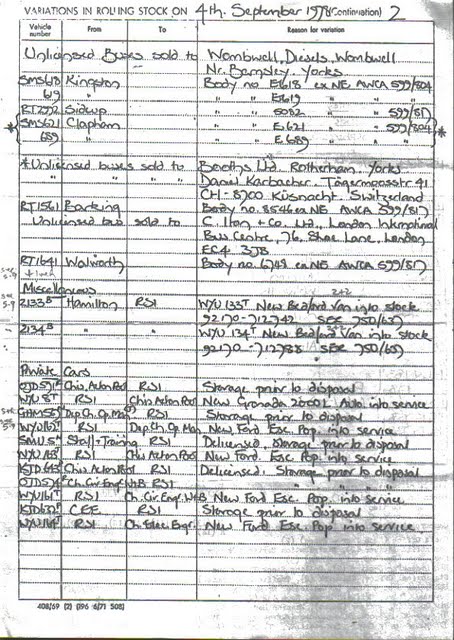 VARIATIONS IN ROLLING STOCK ON 4th. September 1978 (Continuation) 2
Vehicle number From To Reason for variation
Unlicensed Buses sold to Wombwell Diesels, Wombwell
Nr. Barnsley. Yorks
SMS618 Kingston Body no. E1618 ex NE AWCA 599/804
619 " E1619 " " "
RT2792 Sidcup " 5082 " " 599/817
* SMS621 Clapham " E621 " " 599/804 *
689 " " E689 " " "
* Unlicensed buses sold to Booths Ltd. Rotherham. Yorks.
" " " " Daniel Karbacher. Tägermoosstr 41
CH-8700 Küsnacht. Switzerland
RT1561 Barking Body no. 8546 ex NE AWCA 599/817
Unlicensed bus sold to C. Itoh & Co. Ltd., London International
Bus Centre, 76, Shoe Lane, London
EC4 3JB
RT1641 Walworth Body no. 6748 ex NE AWCA 599/817
Miscellaneous
2133B Hamilton RSI WYU 133T New Bedford Van into stock
92170-712742 SEC 750/65
2134B " " WYU 134T New Bedford Van into stock
92170-712788 SEC 750/65
Private Cars
Chis. Acton Pool RSI Storage prior to disposal
RSI Chis Acton Pool New Granada 2000L Auto into service
Dep. Ch. Op. Man RSI Storage prior to disposal
RSI Dep. Ch. Op. Man New Ford Esc. Pop. into service
Staff & Training RSI Delicensed. Storage prior to disposal
RSI Chis Acton Pool New Ford. Esc. Pop. into service
Chis Acton Pool RSI Delicensed. Storage prior to disposal
Ch. Civ. Engr. RSI " " " "
RSI Ch. Civ. Engr. New Ford Esc. Pop. into service
CEE. RSI Storage prior to disposal
RSI Ch. Elec. Engr. New Ford Esc. Pop. into service
408/69 (2) (196 6/71 508)